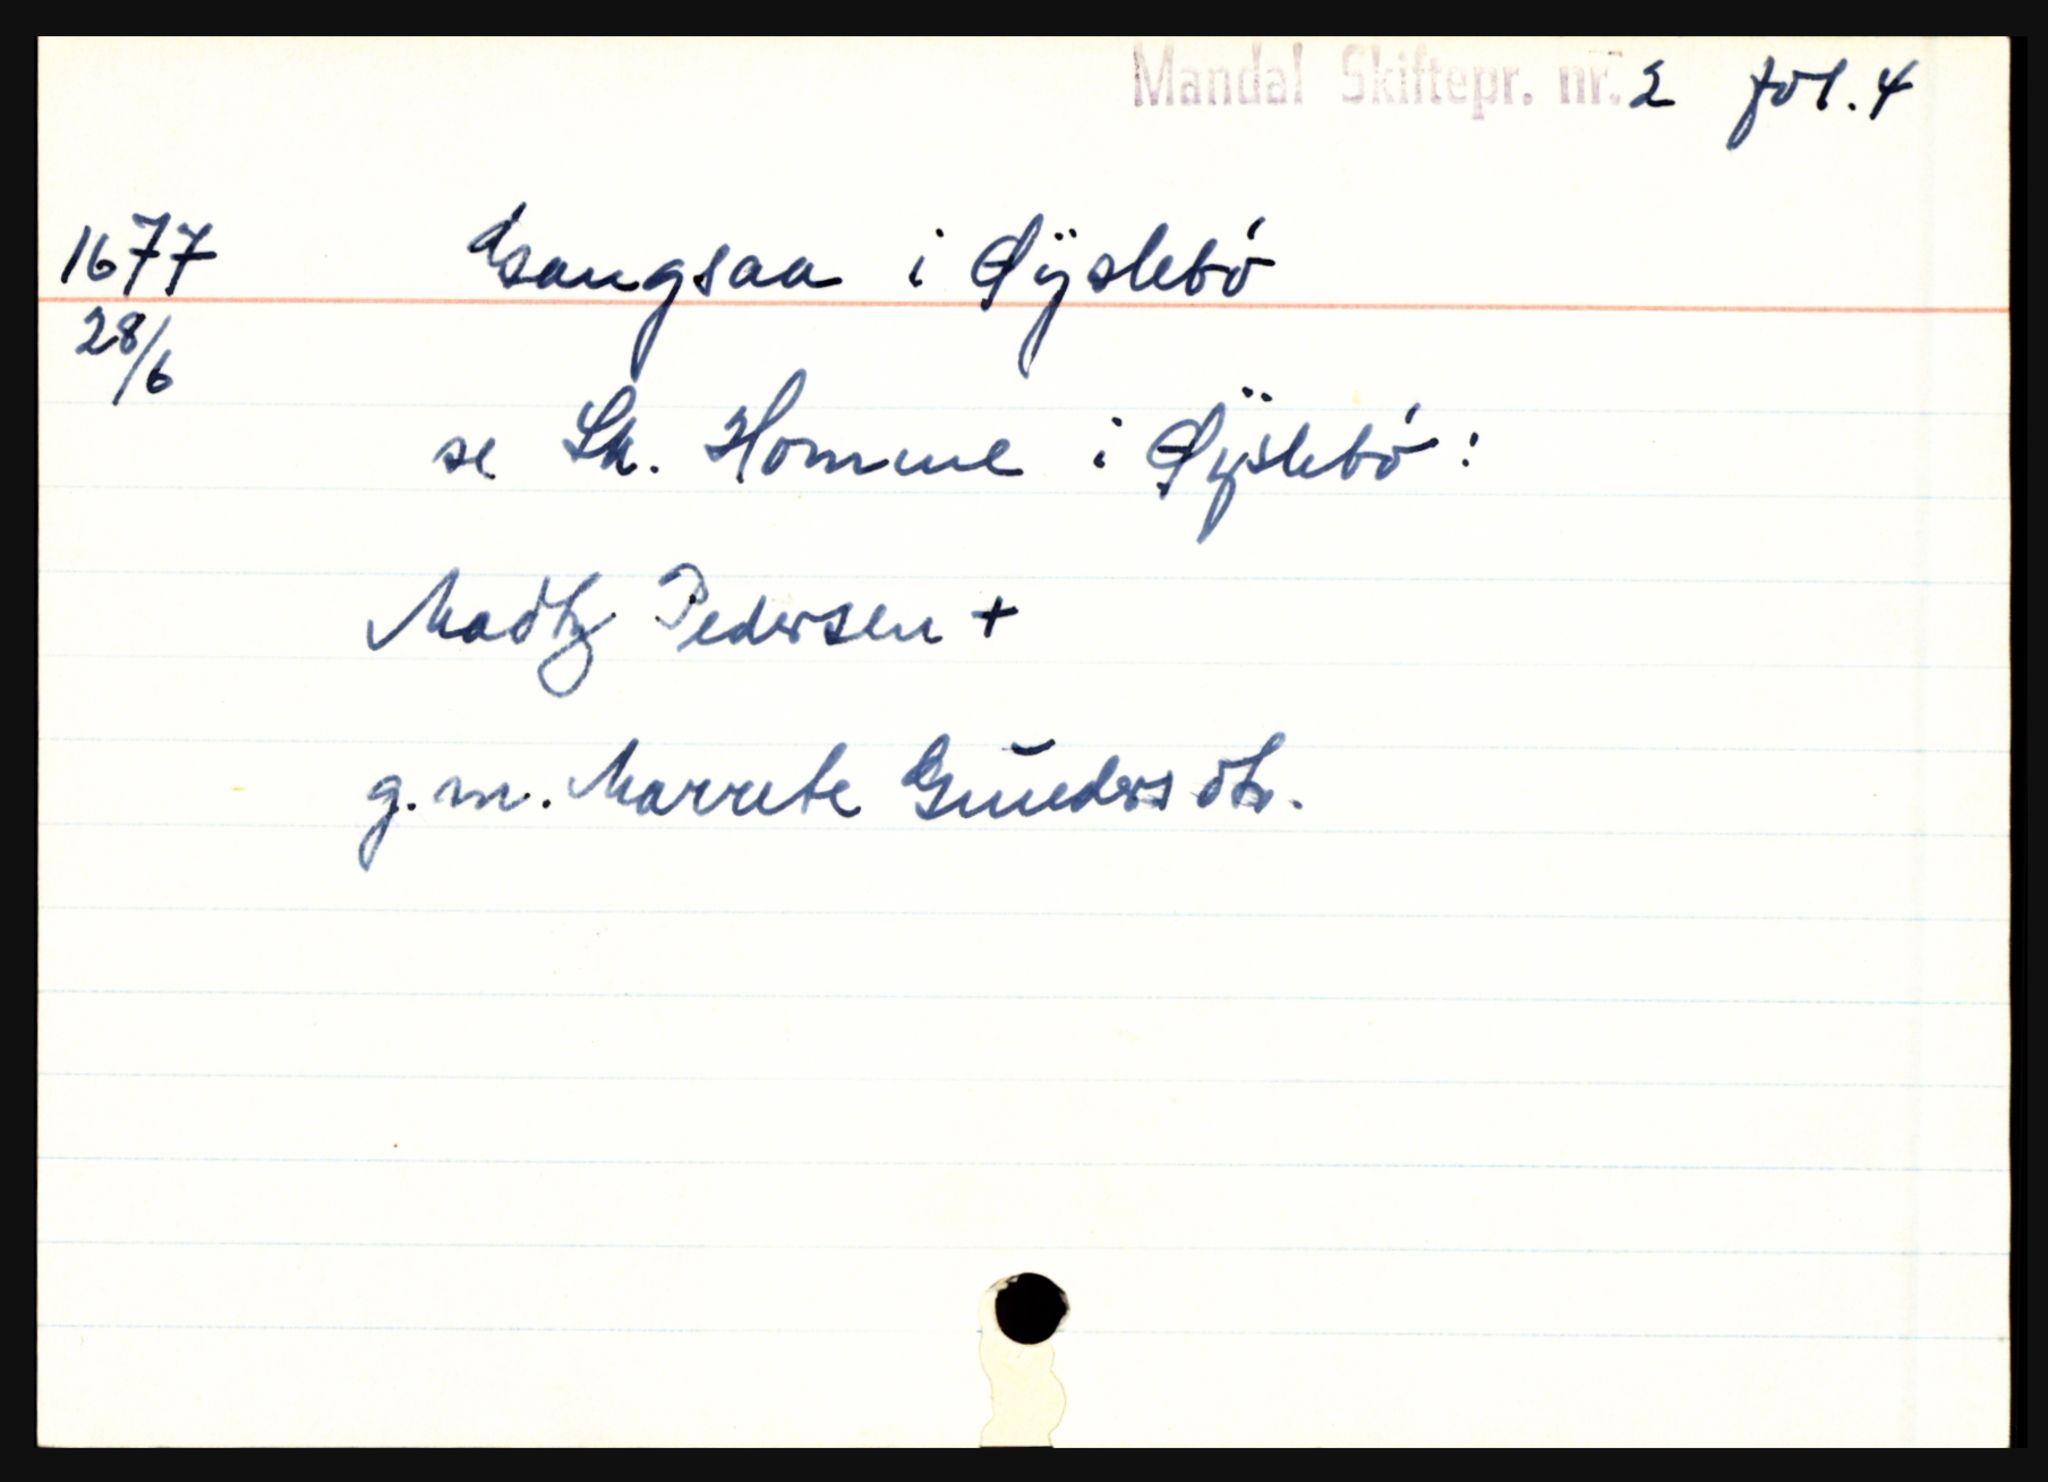 Mandal Skiftepr. nr. 2 fol. 4
1677 Gangsaa i Øÿslebó
28/6
se Lh. Homme i Øÿslebó:
Madtz Pedersen +
g. m. Marrete Gŭndersdtr.